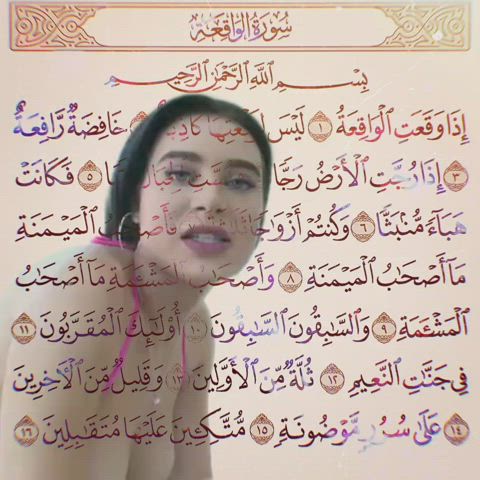 سُورَةُ الوَاقِعَةِ
بِسْمِ ٱللَّهِ ٱلرَّحْمَٰنِ ٱلرَّحِيمِ
إِذَا وَقَعَتِ ٱلْوَاقِعَةُ ١ لَيْسَ لِوَقْعَتِهَا كَاذِبَةٌ ٢ خَافِضَةٌ رَّافِعَةٌ
٣ إِذَا رُجَّتِ ٱلْأَرْضُ رَجًّا ٤ وَبُسَّتِ ٱلْجِبَالُ بَسًّا ٥ فَكَانَتْ
هَبَآءً مُّنۢبَثًّا ٦ وَكُنتُمْ أَزْوَٰجًا ثَلَٰثَةً ٧ فَأَصْحَٰبُ ٱلْمَيْمَنَةِ
مَآ أَصْحَٰبُ ٱلْمَيْمَنَةِ ٨ وَأَصْحَٰبُ ٱلْمَشْـَٔمَةِ مَآ أَصْحَٰبُ
ٱلْمَشْـَٔمَةِ ٩ وَٱلسَّٰبِقُونَ ٱلسَّٰبِقُونَ ١٠ أُو۟لَٰٓئِكَ ٱلْمُقَرَّبُونَ ١١
فِى جَنَّٰتِ ٱلنَّعِيمِ ١٢ ثُلَّةٌ مِّنَ ٱلْأَوَّلِينَ ١٣ وَقَلِيلٌ مِّنَ ٱلْأَخِرِينَ
١٤ عَلَىٰ سُرُرٍ مَّوْضُونَةٍ ١٥ مُّتَّكِـِٔينَ عَلَيْهَا مُتَقَٰبِلِينَ ١٦